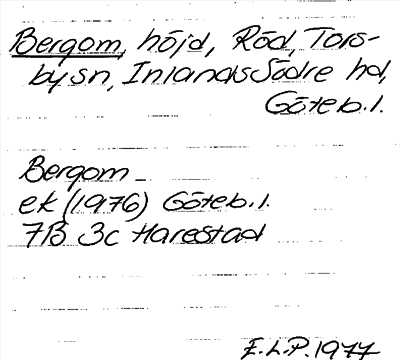 Bergom, höjd, Röd, Tors-
by sn, Inlands Södre hd,
Göteb. l.
Bergom
ek (1976) Göteb. l.
7B 3c Harestad
E.L.P. 1977